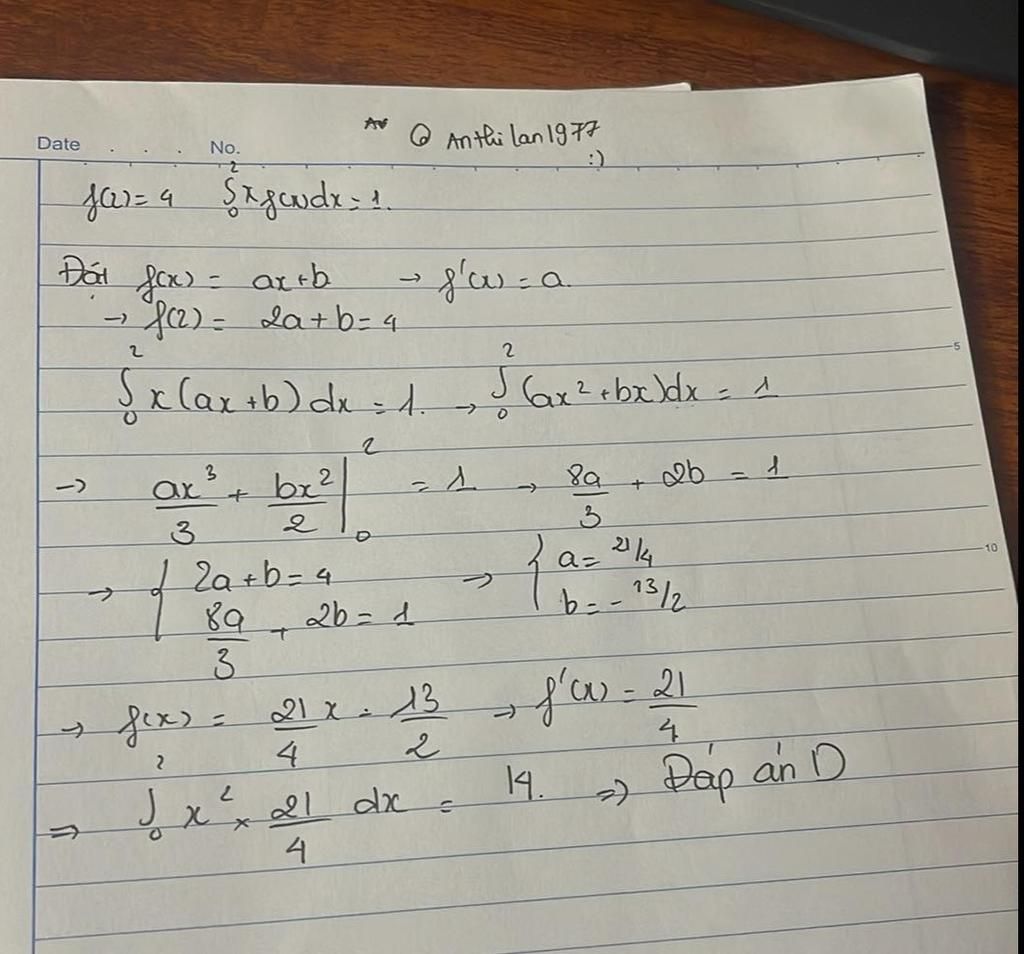 Date . . . No.
@ Anthilan1977
:)
f(2) = 4 ∫₀² x f(x) dx = 1.
Đặt f(x) = ax+b → f'(x) = a.
→ f(2) = 2a+b = 4
∫₀² x(ax+b) dx = 1. → ∫₀² (ax²+bx)dx = 1
5
→ ax³/3 + bx²/2 |₀² = 1 → 8a/3 + 2b = 1
→ { 2a+b = 4 → { a = 21/4
10
8a/3 + 2b = 1 b = -13/2
→ f(x) = 21/4 x - 13/2 → f'(x) = 21/4
⇒ ∫₀² x² × 21/4 dx = 14. ⇒ Đáp án D